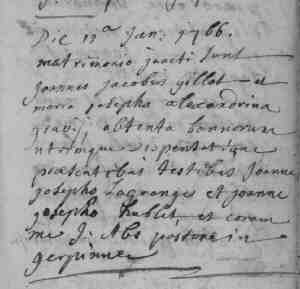 Die 12a Jan: 1766.
matrimonio juncti sunt
joannes jacobus gillot et
maria josepha alexandrina
obtenta bannorum
utrimque dispensatione
praesentibus testibus joanne
josepho Lagrange et joanne
josepho hublet et coram
me J: Abs pastore in
gerpinnes